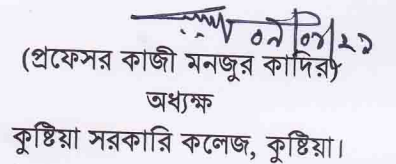 ০৯|০৮|২১
(প্রফেসর কাজী মনজুর কাদির)
অধ্যক্ষ
কুষ্টিয়া সরকারি কলেজ, কুষ্টিয়া।